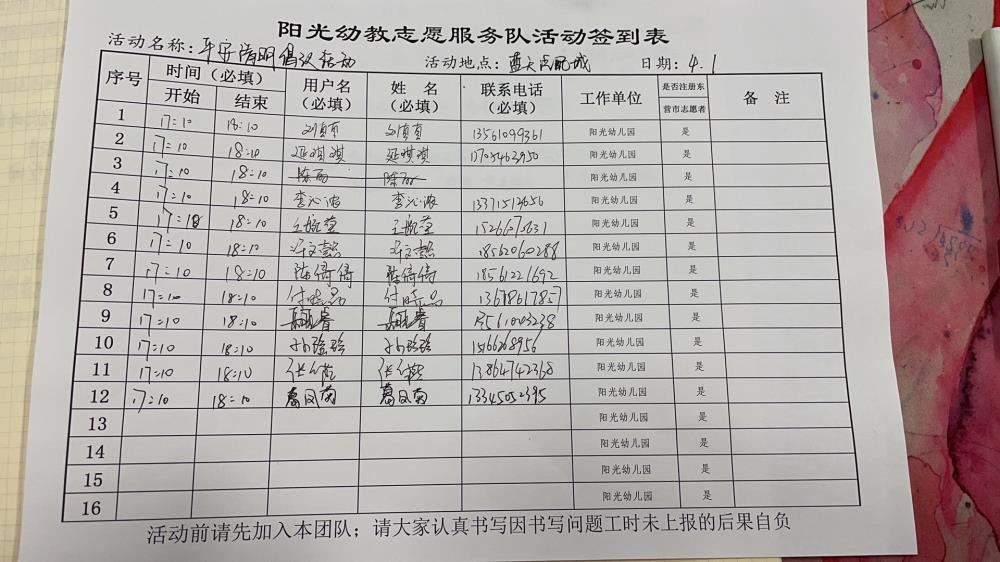 阳光幼教志愿服务队活动签到表
活动名称：平安清明倡议活动 活动地点：蓝天 城 日期：4.1
序号 时间（必填） 用户名（必填） 姓名（必填） 联系电话（必填） 工作单位 是否注册东营市志愿者 备注
开始 结束
1 17:10 18:10 刘真真 刘真真 13561099361 阳光幼儿园 是
2 17:10 18:10 延琪琪 延琪琪 阳光幼儿园 是
3 17:10 18:10 陈丽 陈丽 阳光幼儿园 是
4 17:10 18:10 李沁波 李沁波 阳光幼儿园 是
5 17:10 18:10 王航莹 王航莹 阳光幼儿园 是
6 17:10 18:10 18562060288 阳光幼儿园 是
7 17:10 18:10 陈倚倚 陈倚倚 18561221692 阳光幼儿园 是
8 17:10 18:10 付晓晶 付晓晶 13678617857 阳光幼儿园 是
9 17:10 18:10 阳光幼儿园 是
10 17:10 18:10 孙珍珍 孙珍珍 阳光幼儿园 是
11 17:10 18:10 张 张 13864742368 阳光幼儿园 是
12 17:10 18:10 葛凤菊 葛凤菊 13345052395 阳光幼儿园 是
13 阳光幼儿园 是
14 阳光幼儿园 是
15 阳光幼儿园 是
16 阳光幼儿园 是
活动前请先加入本团队；请大家认真书写因书写问题工时未上报的后果自负